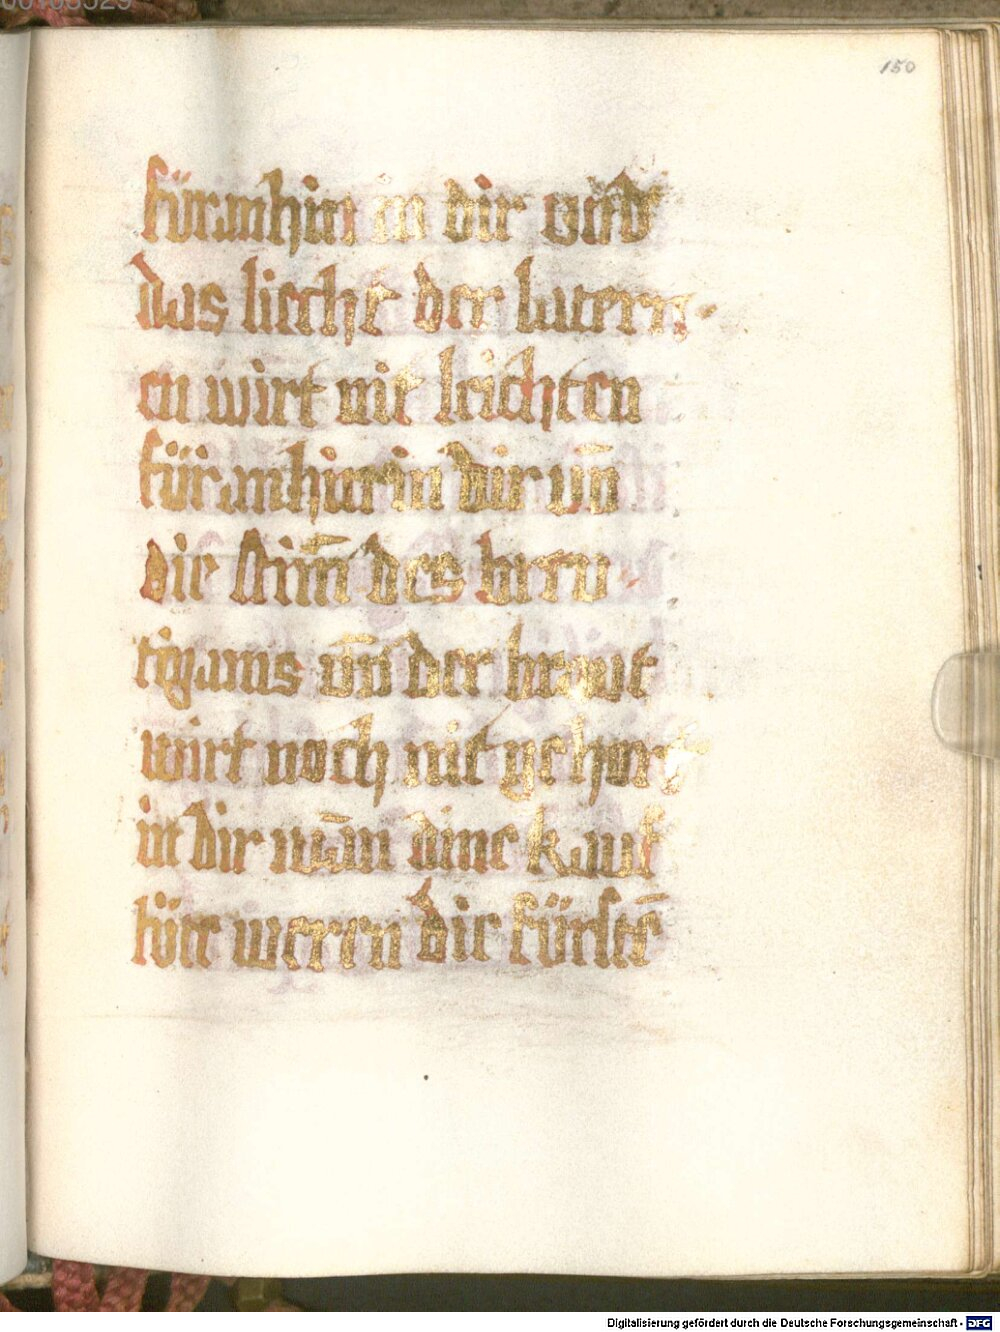 150
füranhin in dir vnd
das liecht der lucern
en wirt nit leichten
für anhin in dir vn̄
die stim̄ des breu
tigams vn̄ der braut
wirt noch nit gehort
in dir wan̄ dine kauf
löte weren die fürstē
Digitalisierung gefördert durch die Deutsche Forschungsgemeinschaft - DFG